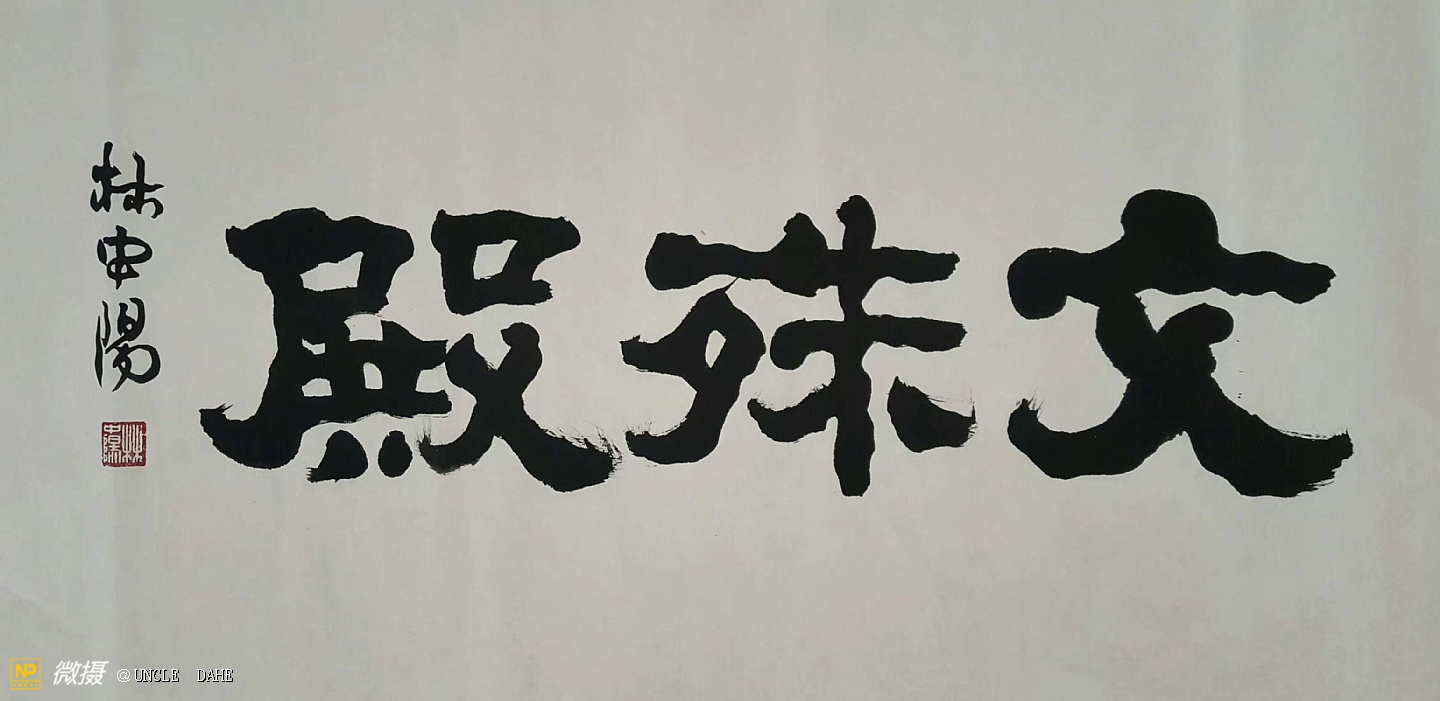 文殊殿
林申陽
NP 微摄 @UNCLE DAHE